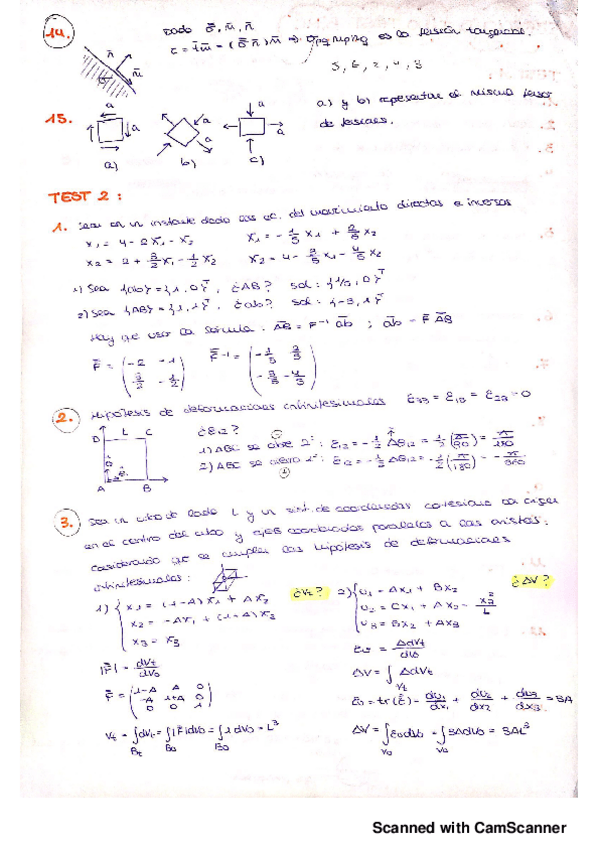 14. dado σ̄, m̄, n̄
n̄
m̄
τ = t̄m̄ = (σ̄ n̄) m̄ ⇒ es la tensión tangencial.
5, 6, 2, 4, 8
15. a a a a a a
a) b) c)
a) y b) representan el mismo tensor
de tensiones.
TEST 2:
1. Sean en un instante dado las ec. del movimiento directas e inversas
x₁ = 4 - 2X₁ - X₂ X₁ = - 1/5 x₁ + 2/5 x₂
x₂ = 2 + 3/2 X₁ - 1/2 X₂ X₂ = 4 - 3/5 x₁ - 4/5 x₂
1) Sea {ab} = {1, 0}ᵀ, ¿AB? sol:
2) Sea {AB} = {1, 1}ᵀ, ¿ab? sol: {-3, 1}ᵀ
Hay que usar la fórmula: A̅B̅ = F⁻¹ a̅b̅ ; a̅b̅ = F̄ A̅B̅
F̄ = ( -2 -1
3/2 -1/2 )
F̄⁻¹ = ( -1/5 2/5
-3/5 -4/5 )
2. Hipótesis de deformaciones infinitesimales = 0
D L C
A B
¿ε₁₂?
1) ABC se abre 2°: ε₁₂ = - 1/2 Δθ₁₂ = 1/2 (π/90) = π/180
2) ABC se cierra 1°: ε₁₂ = - 1/2 Δθ₁₂ = - 1/2 (π/180) = - π/360
3. Sea un cubo de lado L y un sist. de coordenadas cartesianas con origen
en el centro del cubo y ejes coordenados paralelos a las aristas:
considerando que se cumplen las hipótesis de deformaciones
infinitesimales:
¿Vt? ¿ΔV?
1) x₁ = (1-A)X₁ + AX₂
x₂ = -AX₁ + (1+A)X₂
x₃ = X₃
2) u₁ = Ax₁ + Bx₂
u₂ = Cx₁ + Ax₂ - x₂²/L
u₃ = Bx₂ + Ax₃
|F| = dVt/dV₀
F̄ = ( 1-A A 0
-A 1+A 0
0 0 1 )
Vt = ∫Bt dVt = ∫B₀ |F| dV₀ = ∫B₀ 1 dV₀ = L³
εv = ΔdVt/dV₀
ΔV = ∫Vt ΔdVt
εv = tr(ε̄) = du₁/dx₁ + du₂/dx₂ + du₃/dx₃ = 3A
ΔV = ∫V₀ εv dV₀ = ∫V₀ 3A dV₀ = 3AL³
Scanned with CamScanner